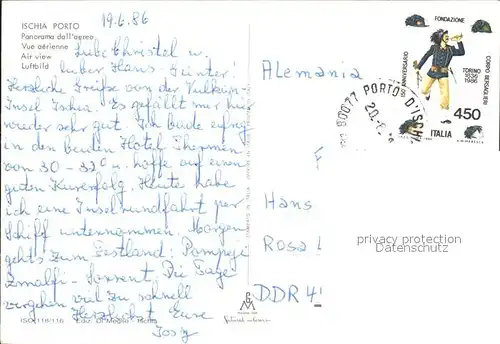 19.6.86
ISCHIA PORTO
Panorama dall'aereo
Vue aérienne
Air view
Luftbild
Liebe Christel u.
lieber Hans-Günter!
Herzliche Grüße von der Vulkan-
Insel Ischia. Es gefällt mir hier
wieder sehr gut. Ich bade eifrig
in den beiden Hotel Thermen
von 30-32° u. hoffe auf einen
guten Kurerfolg. Heute habe
ich eine Inselrundfahrt per
Schiff unternommen. Morgen
geht's zum Festland: Pompeji
Amalfi - Sorrent. Die Tage
vergehen viel zu schnell
Herzlichst Eure
ISO-116/116 Ediz. Di Meglio - Ischia
Alemania
Hans
Rosa L
DDR 4
privacy protection
Datenschutz
80077 PORTO D'ISCH
20.
FONDAZIONE
150° ANNIVERSARIO
CORPO BERSAGLIERI
TORINO
1836
1986
450
ITALIA